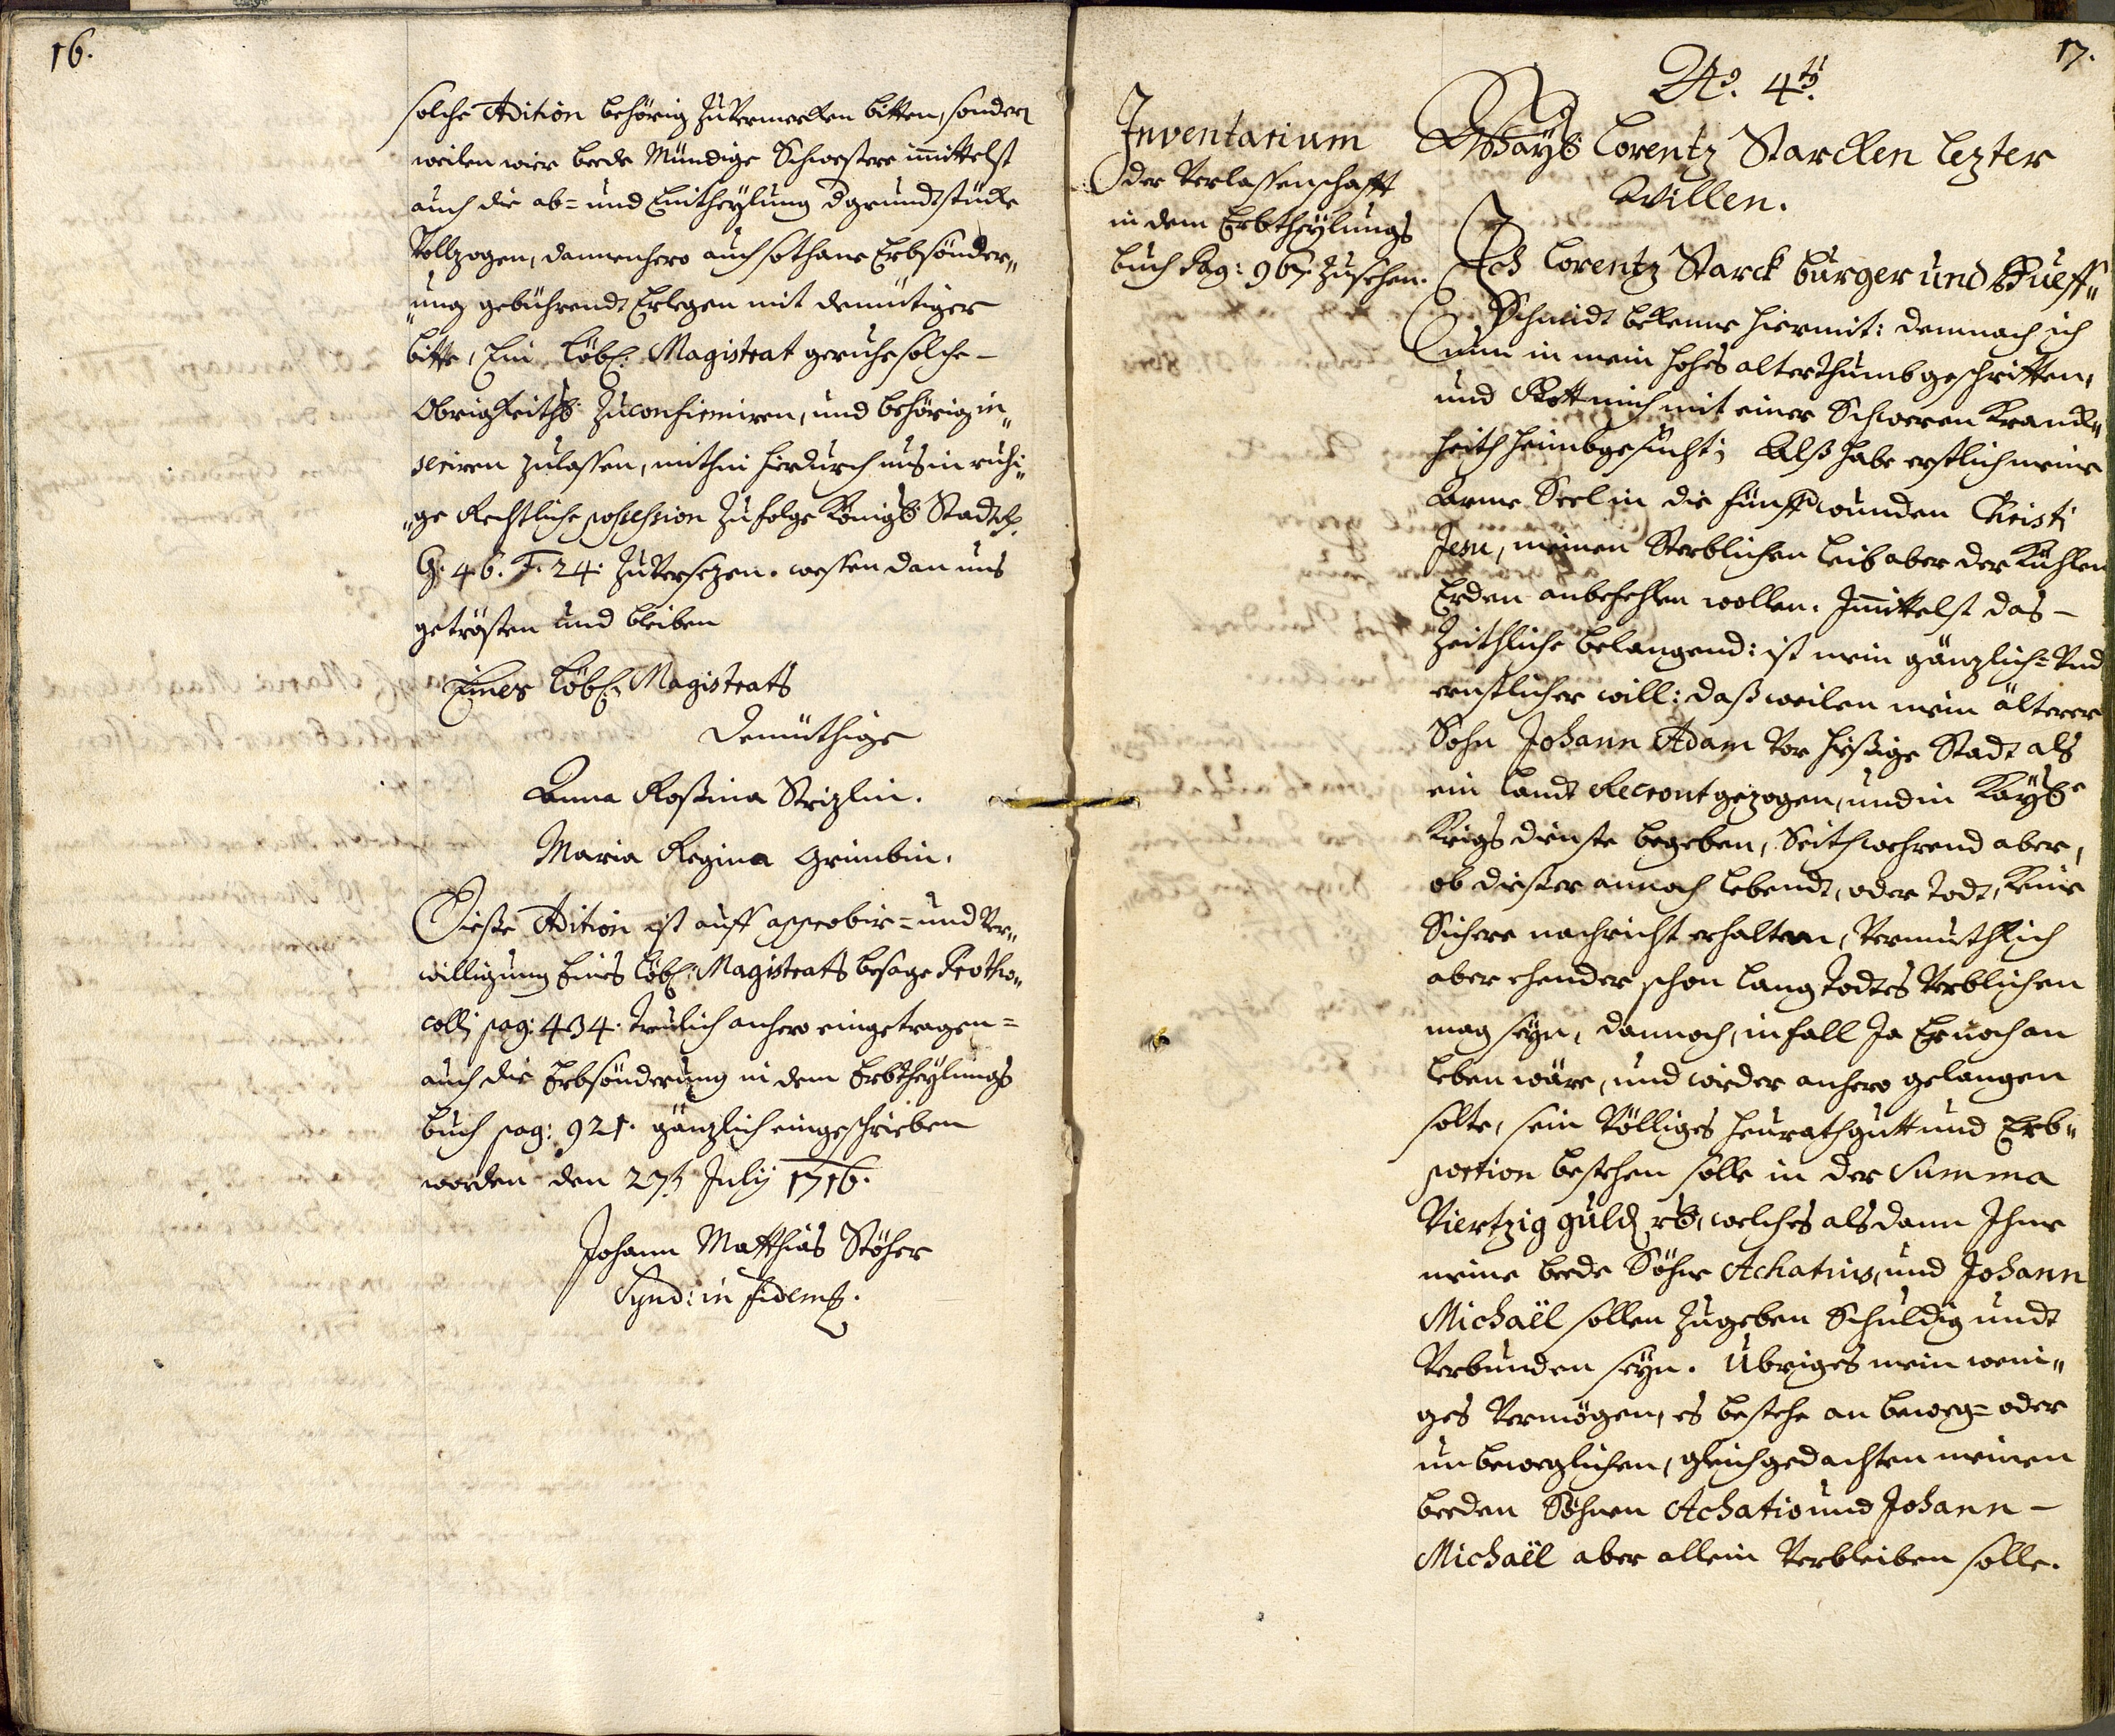 16.
solche Adition behörig zuvermerken bitten, sondern
weilen wier beede Mündige Schwestere inmittelst
auch die ab= und Eintheylung d grundtstücke
Vollzogen, dannenhero auch sothane Erbsönder„
„ung gebührendt Erlegen mit demütiger
bitte, Ein Löbl: Magistrat geruhe solche –
Obrigkeithl: zu confirmiren, und behörig in„
seriren zulassen, mithin hierdurch uns in ruhi„
„ge Rechtliche possession zufolge Königl: Stadtr.
G. 46. F. 24. zuversezen. wessen dan uns
getrösten und bleiben
Eines Löbl: Magistrats
Demüthige
Anna Rossina Strizlin.
Maria Regina Grimbin.
Diesse Adition ist auff approbir= und Ver„
willigung Eines Löbl: Magistrats besage Protho„
colli pag: 434. treulich anhero eingetragen=
auch die Erbsönderung in dem Erbtheylungs
buch pag: 921. gänzlich eingeschrieben
worden den 27t July 1716.
Johann Matthias Stöher
Synd: in fidem.
17.
No. 4to.
Inventarium
der Verlassenschafft
in dem Erbtheylungs
buch Pag: 967. zusehen.
Ways Lorentz Starcken lezter
Willen.
Ich Lorentz Starck burger und Hueff„
Schmidt bekenne hiermit: demnach ich
nun in mein hohes alterthumb geschritten,
und Gott mich mit einer Schweren Kranck„
heith heimbgesucht; Alß habe erstlich meine
Arme Seel in die fünff wunden Christi
Jesu, meinen Sterblichen leib aber der Kühlen
Erden anbefehlen wollen. Inmittelst das –
Zeithliche belangend: ist mein gänzlich= Und
ernstlicher will: daß weilen mein älterer
Sohn Johann Adam vor hießige Stadt als
ein landt Recrout gezogen, und in Kayßl.
Krigs dienste begeben, Seithwehrend aber,
ob dießer annoch lebendt, oder todt, keine
Sichere nachricht erhalten, Vermuthlich
aber ehender schon lang todtes Verblichen
mag seyn, dannoch, in fall Ja Er noch an
leben wäre, und wieder anhero gelangen
solte, sein Völliges heurathgutt und Erb„
portion bestehen solle in der Summa
Viertzig guld rh, welches als dann Ihme
meine beede Söhne Achatius, und Johann
Michaël sollen zugeben Schuldig undt
Verbunden seyn. Übriges mein weni„
ges Vermögen, es bestehe an beweg= oder
unbeweglichen, gleichgedachten meinen
beeden Söhnen Achatio und Johann –
Michaël aber allein Verbleiben solle.